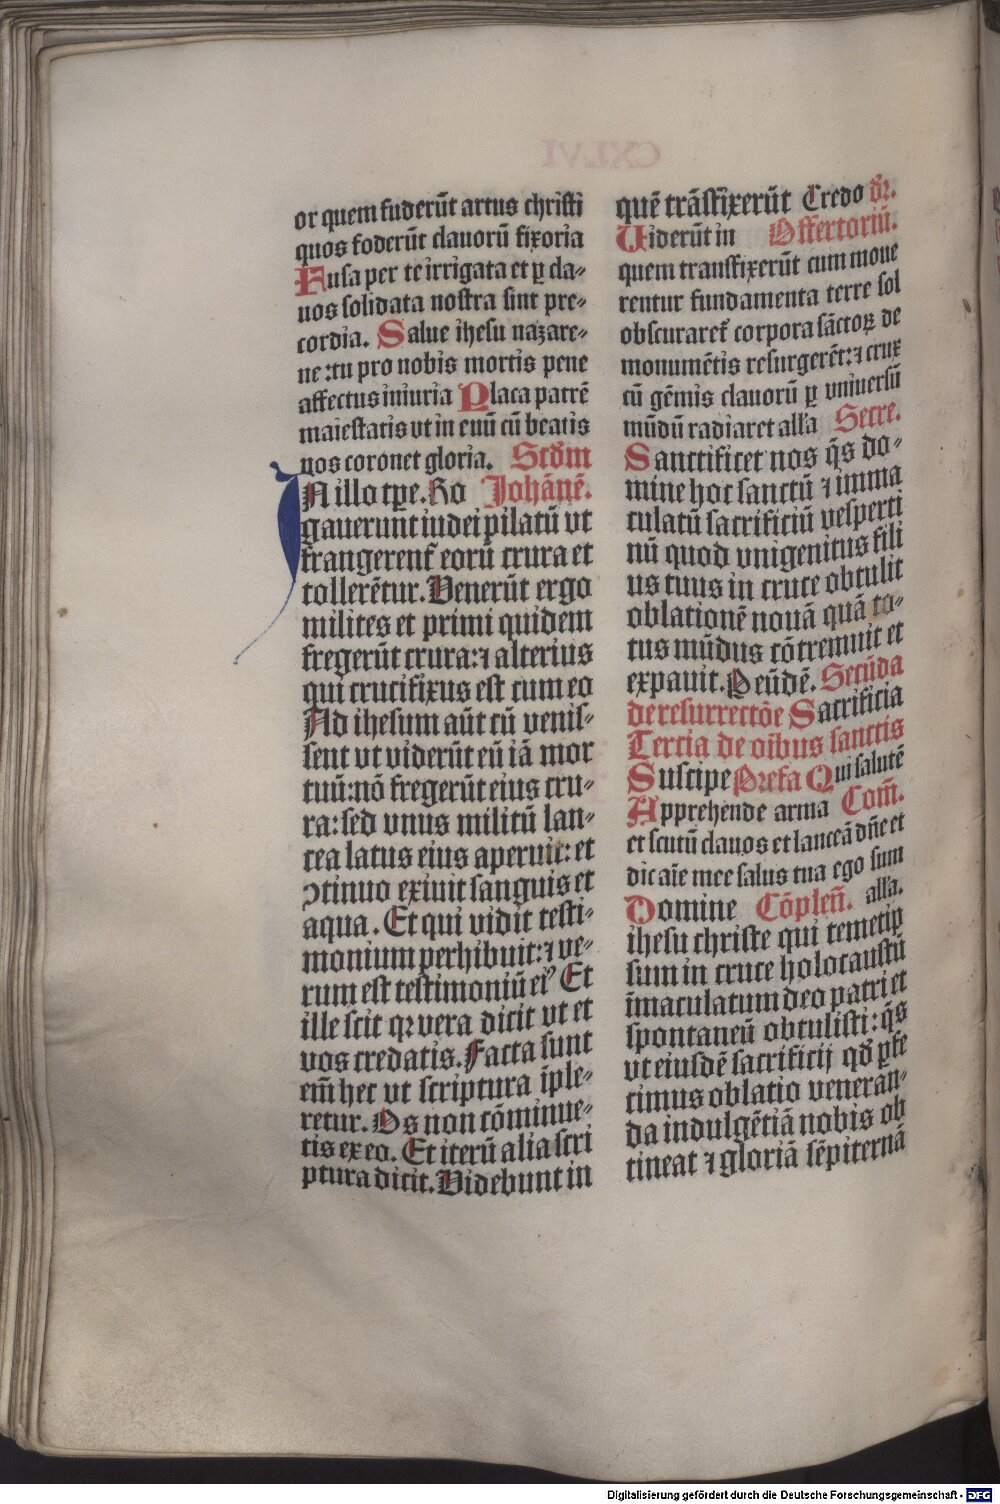 or quem fuderūt artus christi
quos foderūt clauorū fixoria
Fusa per te irrigata et ꝑ cla-
uos solidata nostra sint pre-
cordia. Salue ihesu nazare-
ne :tu pro nobis mortis pene
affectus iniuria Placa patrē
maiestatis vt in euū cū beatis
nos coronet gloria. Scd̄m
IN illo tp̄e. Ro Johānē.
gauerunt iudei pilatū vt
frangerent᷑ eorū crura et
tollerētur. Venerūt ergo
milites et primi quidem
fregerūt crura:⁊ alterius
qui crucifixus est cum eo
Ad ihesum aūt cū venis-
sent vt viderūt eū iā mor
tuū:nō fregerūt eius cru-
ra:sed vnus militū lan-
cea latus eius aperuit: et
ↄtinuo exiuit sanguis et
aqua. Et qui vidit testi-
monium perhibuit:⁊ ve-
rum est testimoniū eiꝰ Et
ille scit qꝛ vera dicit vt et
vos credatis. Facta sunt
em̄ hec vt scriptura īple-
retur. Os non cōminue-
tis ex eo. Et iterū alia scri
ptura dicit. Videbunt in
quē trāsfixerūt Credo
Viderūt in Offertoriū.
quem transfixerūt cum moue
rentur fundamenta terre sol
obscuraret᷑ corpora sāctoꝝ de
monumētis resurgerēt:⁊ crux
cū gēmis clauorū ꝑ vniuersū
mūdū radiaret alla Secre.
Sanctificet nos q̄s do-
mine hoc sanctū ⁊ imma
culatū sacrificiū vesperti
nū quod vnigenitus fili
us tuus in cruce obtulit
oblationē nouā quā to-
tus mūdus cōtremuit et
expauit. Secūda
de resurrectōe Sacrificia
Tercia de oībus sanctis
Suscipe Prefa Qui salutē
Apprehende arma Com̄.
et scutū clauos et lanceā dn̄e et
dic aīe mee salus tua ego sum
Domine Cōpleñ. alla.
ihesu christe qui temetip
sum in cruce holocaustū
īmaculatum deo patri et
spontaneū obtulisti: q̄s
vt eiusdē sacrificij qd̄
timus oblatio veneran-
da indulgētiā nobis ob
tineat ⁊ gloriā sēpiternā
Digitalisierung gefördert durch die Deutsche Forschungsgemeinschaft - DFG